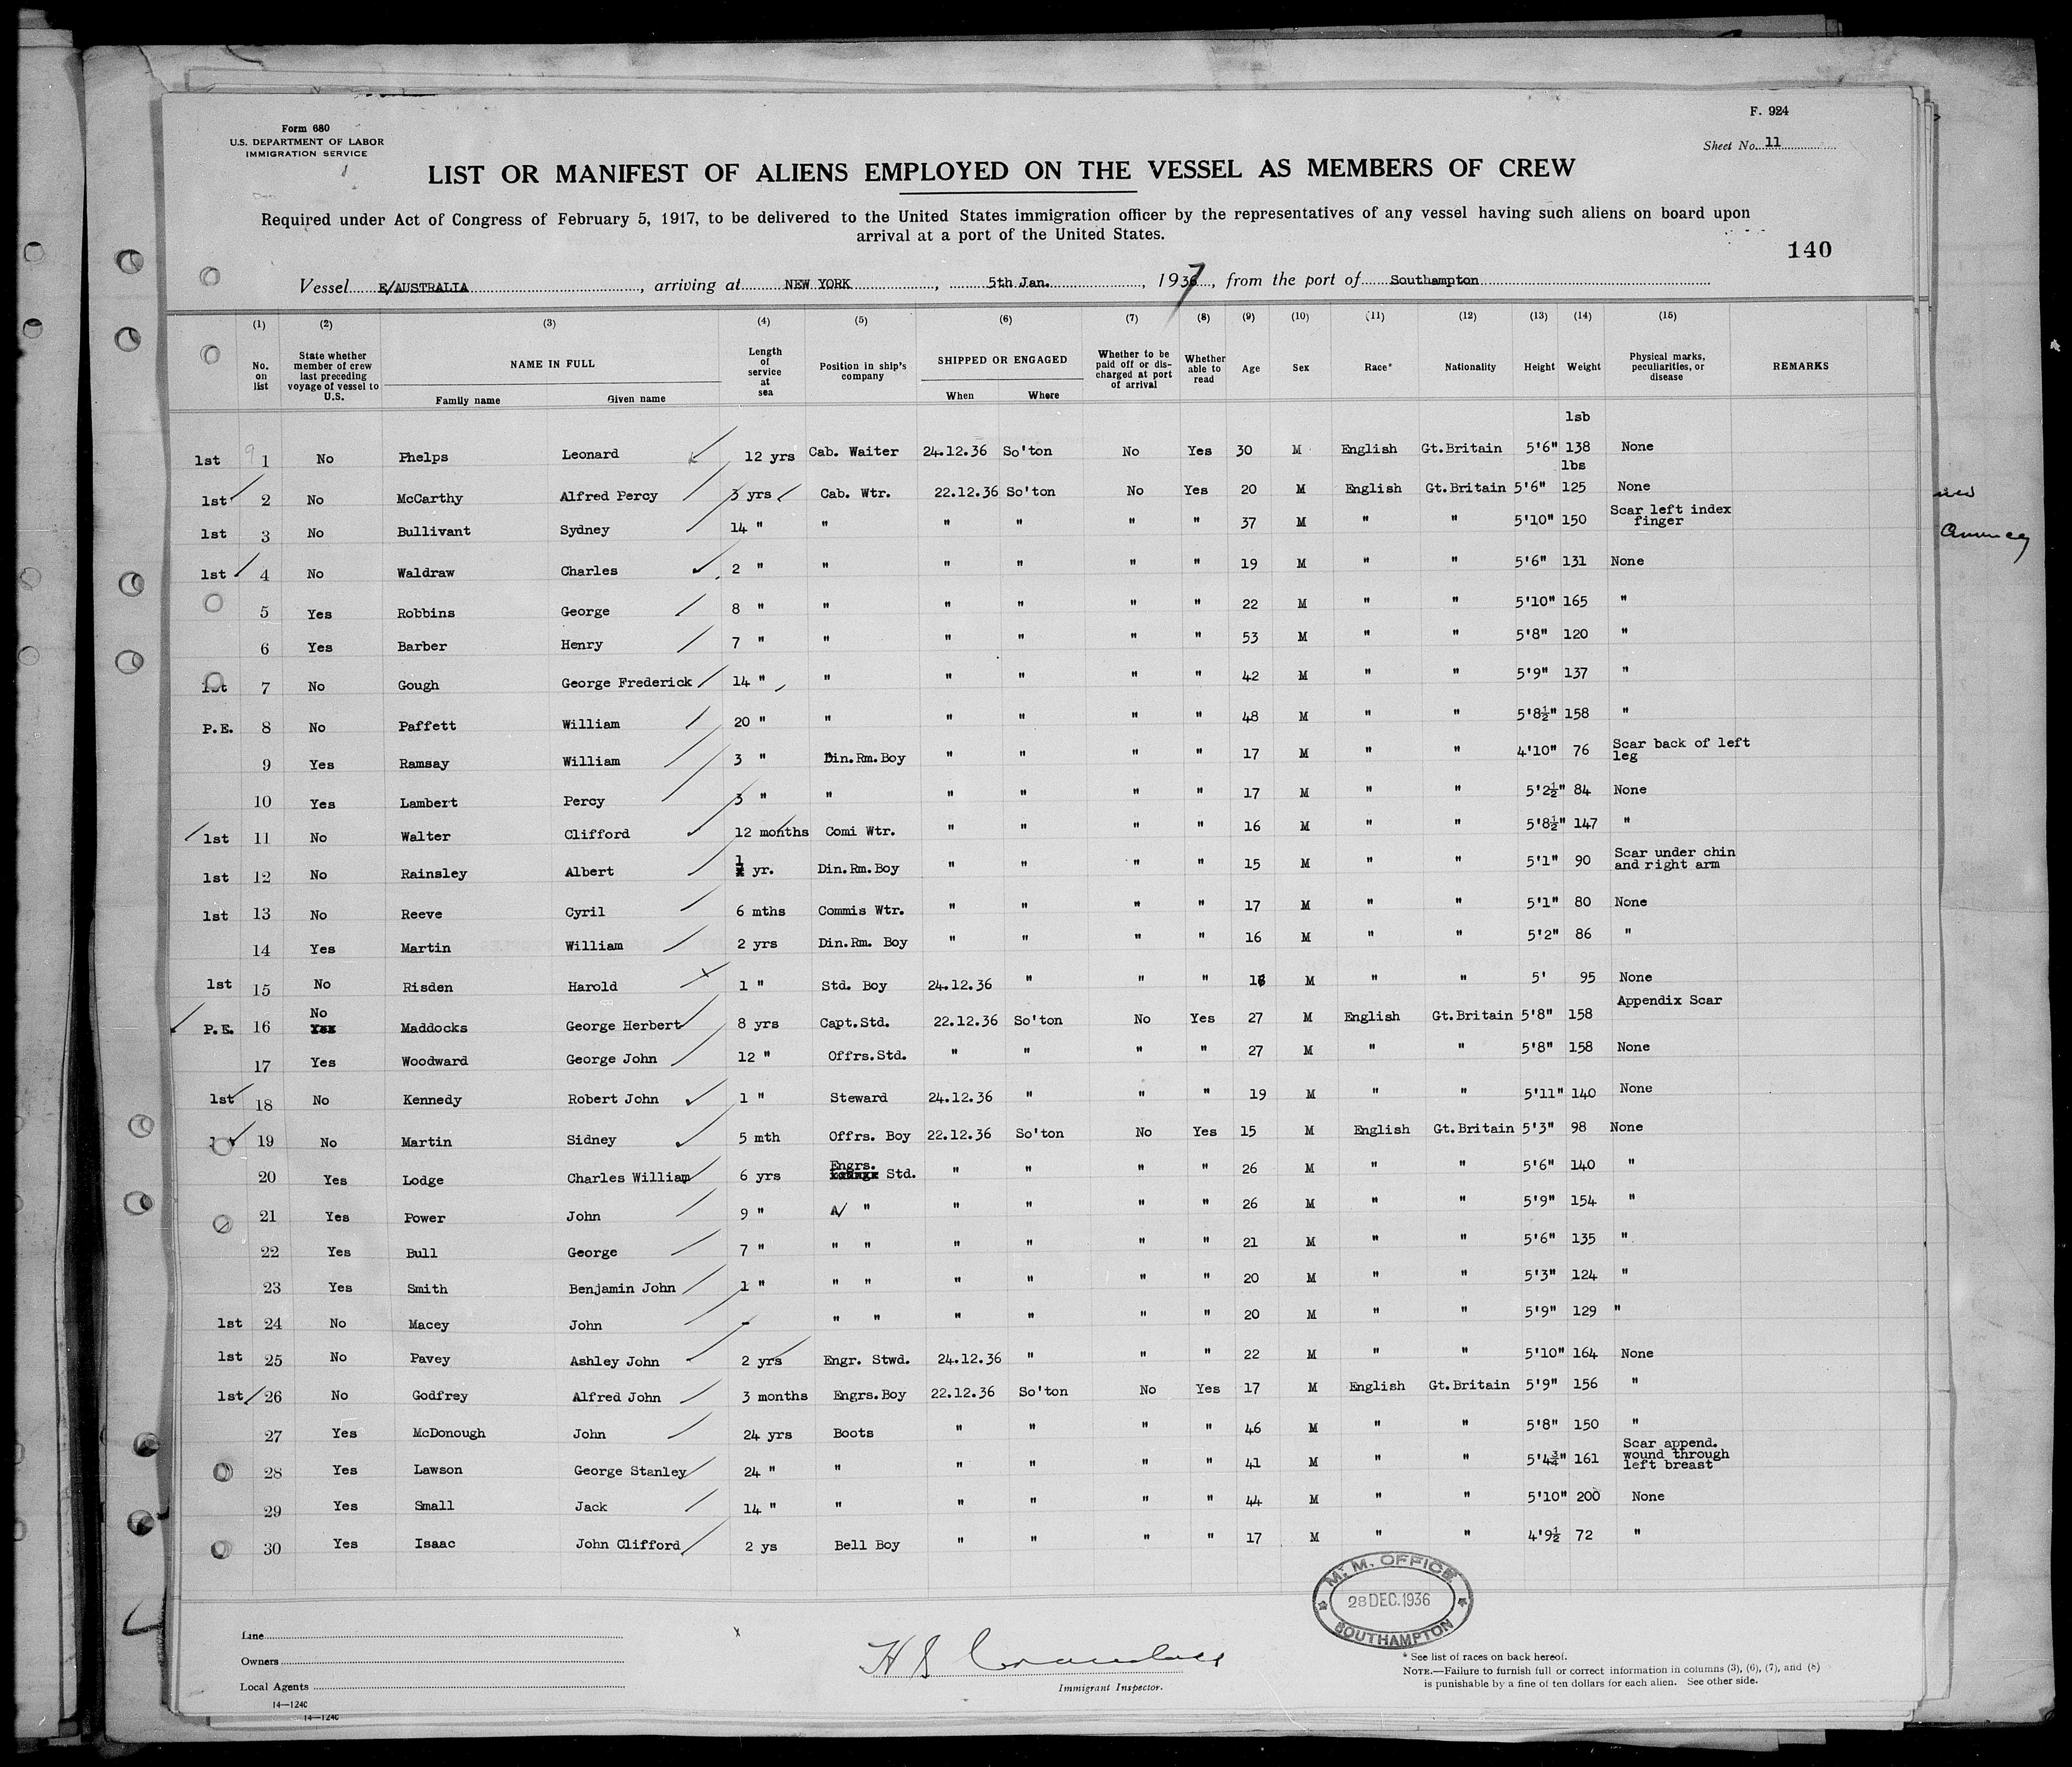 Form 680
U.S. DEPARTMENT OF LABOR
IMMIGRATION SERVICE
F. 924
Sheet No. 11
LIST OR MANIFEST OF ALIENS EMPLOYED ON THE VESSEL AS MEMBERS OF CREW
Required under Act of Congress of February 5, 1917, to be delivered to the United States immigration officer by the representatives of any vessel having such aliens on board upon
arrival at a port of the United States.
140
Vessel E/AUSTRALIA, arriving at NEW YORK, 5th Jan., 1937, from the port of Southampton
(1) (2) (3) (4) (5) (6) (7) (8) (9) (10) (11) (12) (13) (14) (15)
No. on list State whether member of crew last preceding voyage of vessel to U.S. NAME IN FULL Family name Given name Length of service at sea Position in ship's company SHIPPED OR ENGAGED When Where Whether to be paid off or discharged at port of arrival Whether able to read Age Sex Race* Nationality Height Weight Physical marks, peculiarities, or disease REMARKS
lsb
1st 1 No Phelps Leonard 12 yrs Cab. Waiter 24.12.36 So'ton No Yes 30 M English Gt.Britain 5'6" 138 None
lbs
1st 2 No McCarthy Alfred Percy 3 yrs Cab. Wtr. 22.12.36 So'ton No Yes 20 M English Gt.Britain 5'6" 125 None
1st 3 No Bullivant Sydney 14 " " " " " " 37 M " " 5'10" 150 Scar left index finger
1st 4 No Waldraw Charles 2 " " " " " " 19 M " " 5'6" 131 None
5 Yes Robbins George 8 " " " " " " 22 M " " 5'10" 165 "
6 Yes Barber Henry 7 " " " " " " 53 M " " 5'8" 120 "
1st 7 No Gough George Frederick 14 " " " " " " 42 M " " 5'9" 137 "
P.E. 8 No Paffett William 20 " " " " " " 48 M " " 5'8½" 158 "
9 Yes Ramsay William 3 " Din.Rm.Boy " " " " 17 M " " 4'10" 76 Scar back of left leg
10 Yes Lambert Percy 3 " " " " " " 17 M " " 5'2½" 84 None
1st 11 No Walter Clifford 12 months Comi Wtr. " " " " 16 M " " 5'8½" 147 "
1st 12 No Rainsley Albert 1 yr. Din.Rm.Boy " " " " 15 M " " 5'1" 90 Scar under chin and right arm
1st 13 No Reeve Cyril 6 mths Commis Wtr. " " " " 17 M " " 5'1" 80 None
14 Yes Martin William 2 yrs Din.Rm. Boy " " " " 16 M " " 5'2" 86 "
1st 15 No Risden Harold 1 " Std. Boy 24.12.36 " " " M " " 5' 95 None
P.E. 16 No Yes Maddocks George Herbert 8 yrs Capt.Std. 22.12.36 So'ton No Yes 27 M English Gt.Britain 5'8" 158 Appendix Scar
17 Yes Woodward George John 12 " Offrs.Std. " " " " 27 M " " 5'8" 158 None
1st 18 No Kennedy Robert John 1 " Steward 24.12.36 " " " 19 M " " 5'11" 140 None
19 No Martin Sidney 5 mth Offrs. Boy 22.12.36 So'ton No Yes 15 M English Gt.Britain 5'3" 98 None
20 Yes Lodge Charles William 6 yrs Engrs. Std. " " " " 26 M " " 5'6" 140 "
21 Yes Power John 9 " A/ " " " " " 26 M " " 5'9" 154 "
22 Yes Bull George 7 " " " " " " " 21 M " " 5'6" 135 "
23 Yes Smith Benjamin John 1 " " " " " " " 20 M " " 5'3" 124 "
1st 24 No Macey John - " " " " " " 20 M " " 5'9" 129 "
1st 25 No Pavey Ashley John 2 yrs Engr. Stwd. 24.12.36 " " " 22 M " " 5'10" 164 None
1st 26 No Godfrey Alfred John 3 months Engrs.Boy 22.12.36 So'ton No Yes 17 M English Gt.Britain 5'9" 156 "
27 Yes McDonough John 24 yrs Boots " " " " 46 M " " 5'8" 150 "
28 Yes Lawson George Stanley 24 " " " " " " 41 M " " 5'4¾" 161 Scar append. wound through left breast
29 Yes Small Jack 14 " " " " " " 44 M " " 5'10" 200 None
30 Yes Isaac John Clifford 2 ys Bell Boy " " " " 17 M " " 4'9½ 72 "
M. M. OFFICE
28 DEC. 1936
SOUTHAMPTON
Line
Owners
Local Agents
14—1240
14—1240
Immigrant Inspector.
* See list of races on back hereof.
NOTE.—Failure to furnish full or correct information in columns (3), (6), (7), and (8)
is punishable by a fine of ten dollars for each alien. See other side.